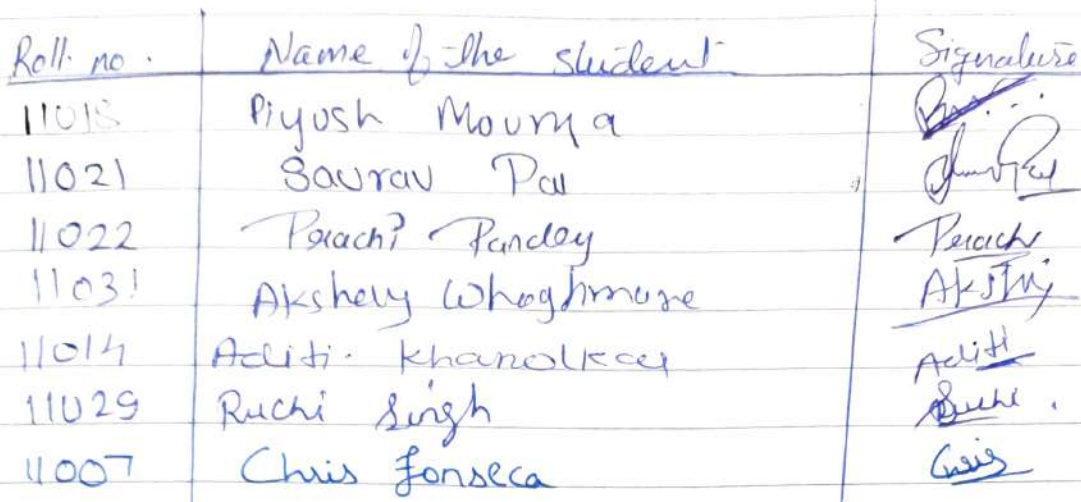 Roll. no. Name of the student Signature
11018 Piyush Mourya
11021 Saurav Pal
11022 Prachi Pandey Prachi
11031 Akshay Whaghmare Akshay
11014 Aditi. Khanolkar Aditi
11029 Ruchi Singh Ruchi.
11007 Chris Fonseca Chris